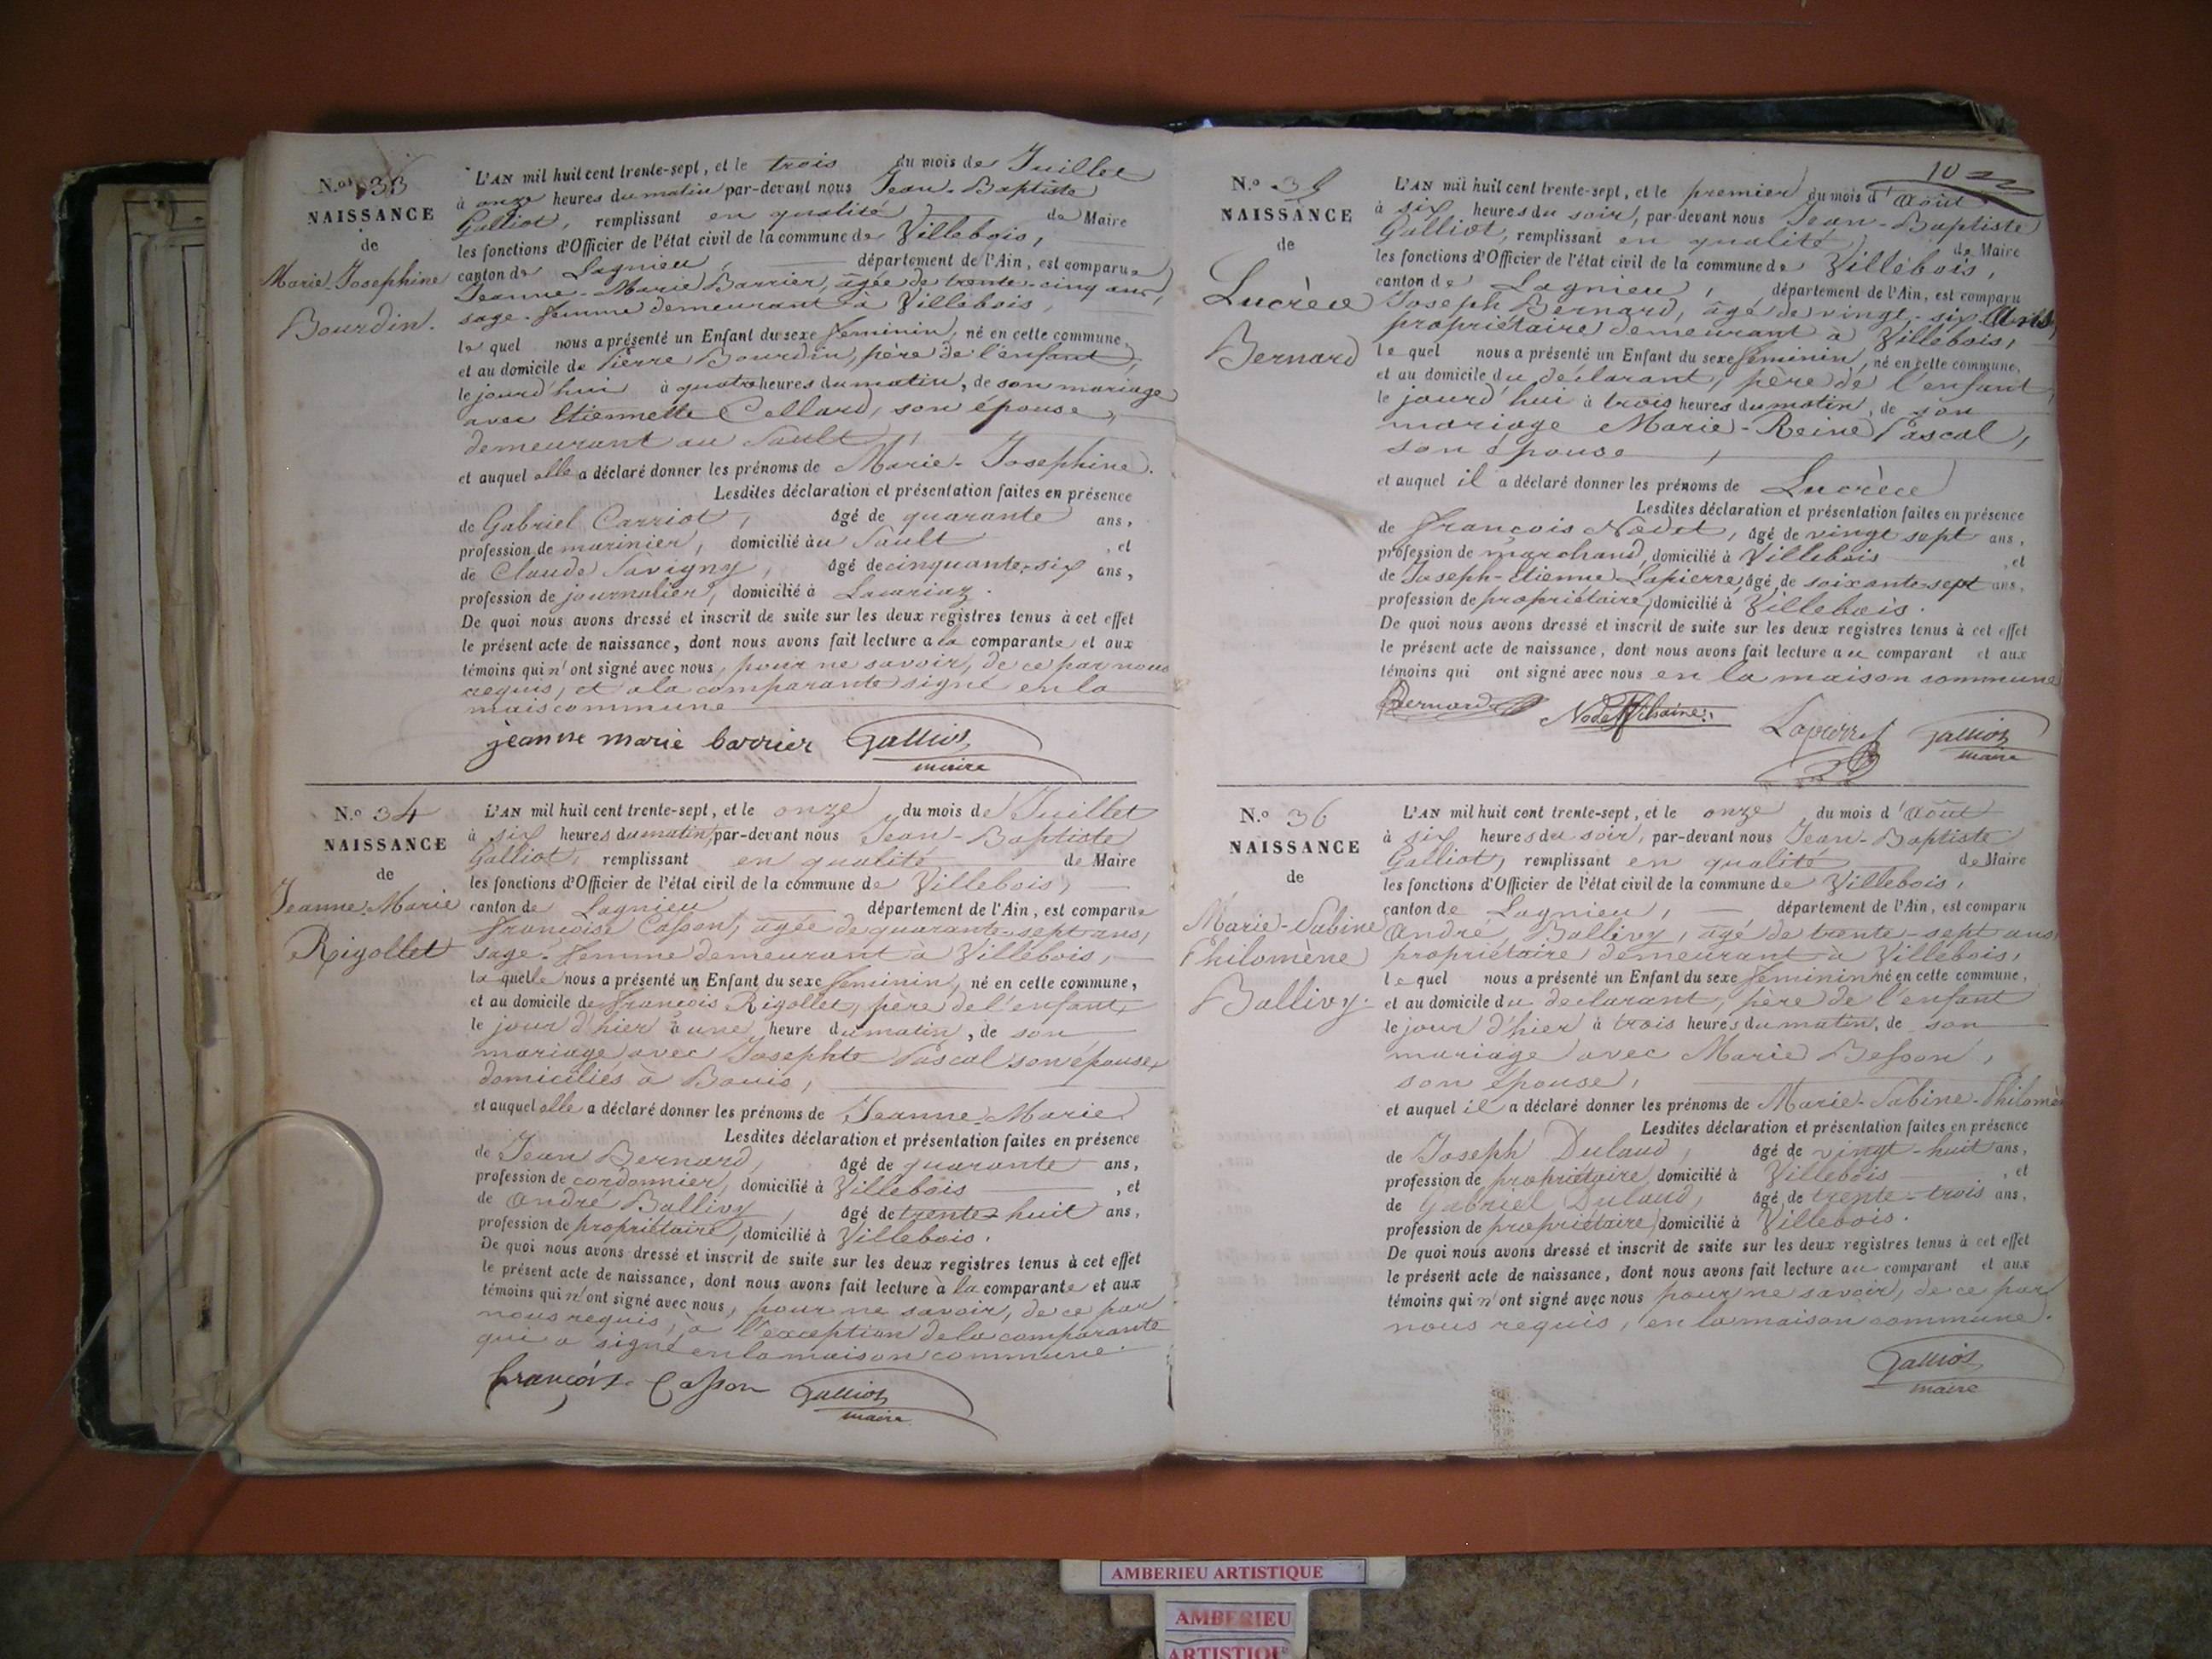 N.os 33
NAISSANCE
de
Marie-Josephine
Bourdin.
L'AN mil huit cent trente-sept, et le trois du mois de Juillet
à onze heures du matin par-devant nous Jean-Baptiste
Galliot, remplissant en qualité de Maire
les fonctions d'Officier de l'état civil de la commune de Villebois,
canton de Lagnieu, département de l'Ain, est comparue
Jeanne-Marie Barrier, âgée de trente-cinq ans,
sage-femme demeurant à Villebois,
le quel nous a présenté un Enfant du sexe feminin, né en cette commune,
et au domicile de Pierre Bourdin, père de l'enfant,
le jourd'hui à quatre heures du matin, de son mariage
avec Etiennette Collard, son épouse,
demeurant au Sault,
et auquel elle a déclaré donner les prénoms de Marie-Josephine.
Lesdites déclaration et présentation faites en présence
de Gabriel Carriot, âgé de quarante ans,
profession de marinier, domicilié àu Sault, et
de Claude Savigny, âgé de cinquante-six ans,
profession de journalier, domicilié à Lacariaz.
De quoi nous avons dressé et inscrit de suite sur les deux registres tenus à cet effet
le présent acte de naissance, dont nous avons fait lecture a la comparante et aux
témoins qui n'ont signé avec nous, pour ne savoir, de ce par nous
requis, et a la comparante signé en la
maiscommune
jeanne marie barrier Galliot
maire
N.o 34
NAISSANCE
de
Jeanne-Marie
Rigollet
L'AN mil huit cent trente-sept, et le onze du mois de Juillet
à six heures du matin, par-devant nous Jean-Baptiste
Galliot, remplissant en qualité de Maire
les fonctions d'Officier de l'état civil de la commune de Villebois,
canton de Lagnieu, département de l'Ain, est comparue
Francoise Casson, âgée de quarante-sept ans,
sage-femme demeurant à Villebois,
la quelle nous a présenté un Enfant du sexe feminin, né en cette commune,
et au domicile de François Rigollet, père de l'enfant,
le jour d'hier à une heure du matin, de son
mariage avec Josephte Pascal son épouse,
domiciliés à Bouis,
et auquel elle a déclaré donner les prénoms de Jeanne-Marie
Lesdites déclaration et présentation faites en présence
de Jean Bernard, âgé de quarante ans,
profession de cordonnier, domicilié à Villebois, et
de André Ballivy, âgé de trente-huit ans,
profession de propriétaire, domicilié à Villebois.
De quoi nous avons dressé et inscrit de suite sur les deux registres tenus à cet effet
le présent acte de naissance, dont nous avons fait lecture à la comparante et aux
témoins qui n'ont signé avec nous, pour ne savoir, de ce par
nous requis, à l'exception de la comparante
qui a signé en la maison commune.
françoise Casson Galliot
maire
10
N.o 35
NAISSANCE
de
Lucrèce
Bernard
L'AN mil huit cent trente-sept, et le premier du mois d'Août
à six heures du soir, par-devant nous Jean-Baptiste
Galliot, remplissant en qualité de Maire
les fonctions d'Officier de l'état civil de la commune de Villebois,
canton de Lagnieu, département de l'Ain, est comparu
Joseph Bernard, âgé de vingt-six Ans
propriétaire demeurant à Villebois,
le quel nous a présenté un Enfant du sexe feminin, né en cette commune,
et au domicile du déclarant, père de l'enfant,
le jourd'hui à trois heures du matin, de son
mariage Marie-Reine Pascal,
son épouse,
et auquel il a déclaré donner les prénoms de Lucrèce
Lesdites déclaration et présentation faites en présence
de François Nodet, âgé de vingt sept ans,
profession de marchand, domicilié à Villebois, et
de Joseph-Etienne Lapierre, âgé de soixante-sept ans,
profession de propriétaire, domicilié à Villebois.
De quoi nous avons dressé et inscrit de suite sur les deux registres tenus à cet effet
le présent acte de naissance, dont nous avons fait lecture au comparant et aux
témoins qui ont signé avec nous en la maison commune
Bernard Nodet Lapierre Galliot
maire
N.o 36
NAISSANCE
de
Marie-Sabine
Philomène
Ballivy.
L'AN mil huit cent trente-sept, et le onze du mois d'Août
à six heures du soir, par-devant nous Jean-Baptiste
Galliot, remplissant en qualité de Maire
les fonctions d'Officier de l'état civil de la commune de Villebois,
canton de Lagnieu, département de l'Ain, est comparu
André Ballivy, âgé de trente-sept ans,
propriétaire demeurant à Villebois,
le quel nous a présenté un Enfant du sexe feminin né en cette commune,
et au domicile du déclarant, père de l'enfant
le jour d'hier à trois heures du matin, de son
mariage avec Marie Besson,
son épouse,
et auquel il a déclaré donner les prénoms de Marie-Sabine-Philomè
Lesdites déclaration et présentation faites en présence
de Joseph Dulaud, âgé de vingt-huit ans,
profession de propriétaire, domicilié à Villebois, et
de Gabriel Dulaud, âgé de trente-trois ans,
profession de propriétaire, domicilié à Villebois.
De quoi nous avons dressé et inscrit de suite sur les deux registres tenus à cet effet
le présent acte de naissance, dont nous avons fait lecture au comparant et aux
témoins qui n'ont signé avec nous pour ne savoir, de ce par
nous requis, en la maison commune.
Galliot
maire
AMBERIEU ARTISTIQUE
AMBERIEU
ARTISTIQU